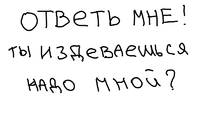 ОТВЕТЬ МНЕ!
ТЫ ИЗДЕВАЕШЬСЯ
НАДО МНОЙ?